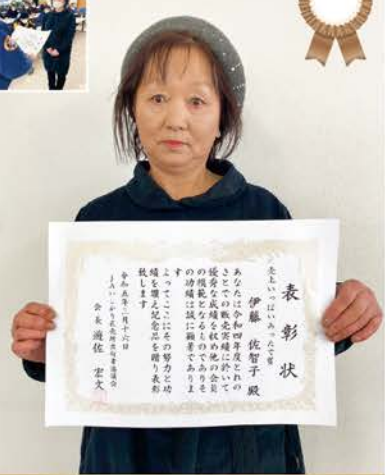 表彰状
売上いっぱいあったで賞
伊藤 佐智子 殿
あなたは令和四年度とれの
さとでの販売実績に於いて
優秀な成績を収め他の会員
の模範となるものでありそ
の功績は誠に顕著でありま
す
よってここにその努力と功
績を讃え記念品を贈り表彰
致します
令和五年二月十六日
直売所出荷者協議会
会長 遊佐 宏文